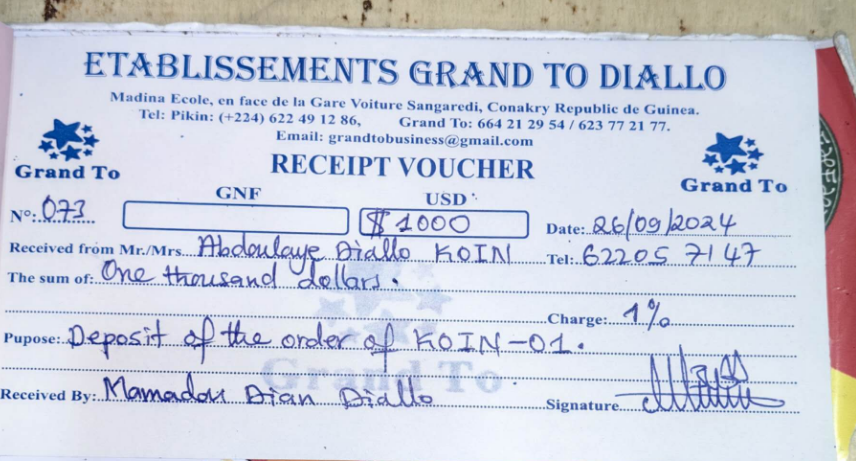 ETABLISSEMENTS GRAND TO DIALLO
Madina Ecole, en face de la Gare Voiture Sangaredi, Conakry Republic de Guinea.
Tel: Pikin: (+224) 622 49 12 86, Grand To: 664 21 29 54 / 623 77 21 77.
Email: grandtobusiness@gmail.com
Grand To
RECEIPT VOUCHER
Grand To
GNF USD
N°: 073 $ 1000 Date: 26/09/2024
Received from Mr./Mrs. Abdoulaye Diallo KOIN Tel: 62205 7147
The sum of: One thousand dollars.
Charge: 1%
Pupose: Deposit of the order of KOIN-01.
Grand To
Received By: Mamadou Dian Diallo Signature